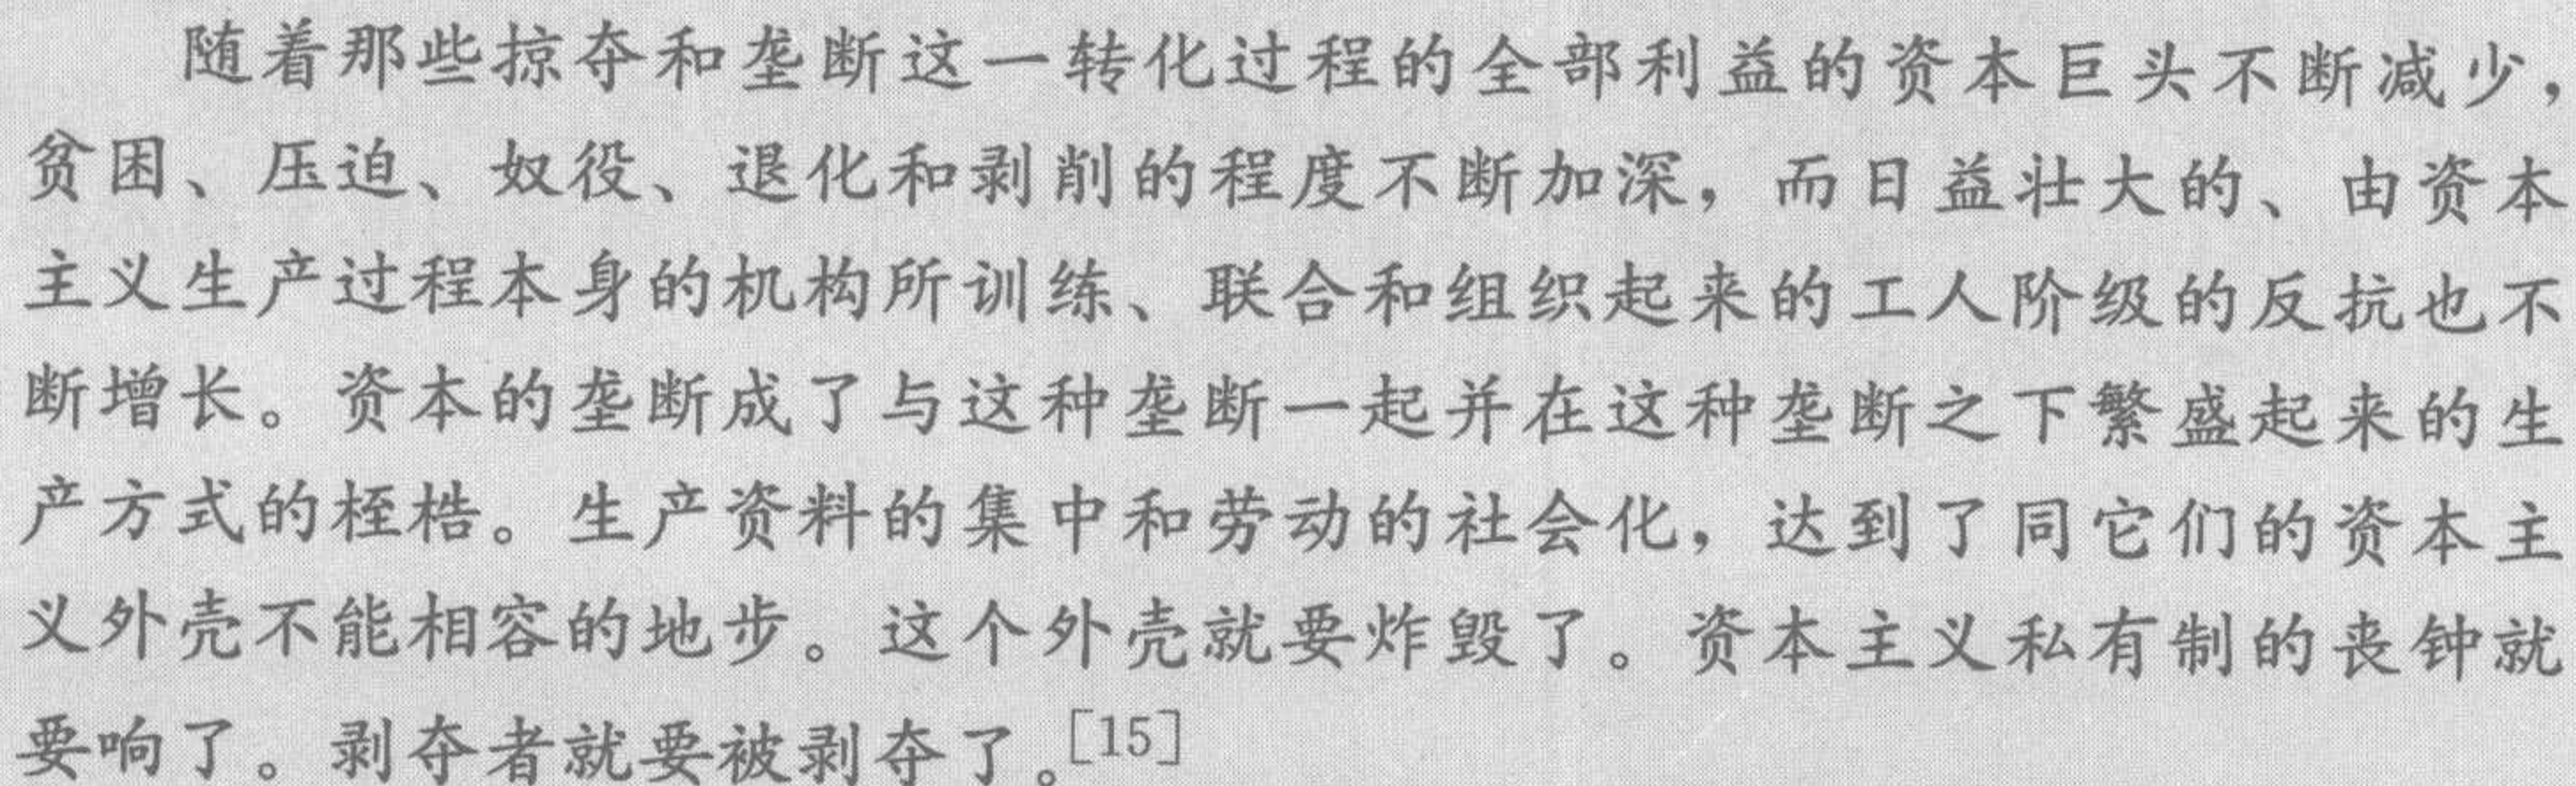 随着那些掠夺和垄断这一转化过程的全部利益的资本巨头不断减少，
贫困、压迫、奴役、退化和剥削的程度不断加深，而日益壮大的、由资本
主义生产过程本身的机构所训练、联合和组织起来的工人阶级的反抗也不
断增长。资本的垄断成了与这种垄断一起并在这种垄断之下繁盛起来的生
产方式的桎梏。生产资料的集中和劳动的社会化，达到了同它们的资本主
义外壳不能相容的地步。这个外壳就要炸毁了。资本主义私有制的丧钟就
要响了。剥夺者就要被剥夺了。[15]